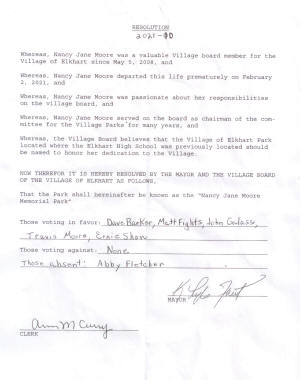 RESOLUTION
2021-
Whereas, Nancy Jane Moore was a valuable Village board member for the
Village of Elkhart since May 5, 2008, and
Whereas, Nancy Jane Moore departed this life prematurely on February
2, 2021, and
Whereas, Nancy Jane Moore was passionate about her responsibilities
on the village board, and
Whereas, Nancy Jane Moore served on the board as chairman of the com-
mittee for Village Parks for many years, and
Whereas, the Village Board believes that the Village of Elkhart Park
located where the Elkhart High School was previously located should
be named to honor her dedication to the Village.
NOW THEREFOR IT IS HEREBY RESOLVED BY THE MAYOR AND THE VILLAGE BOARD
OF THE VILLAGE OF ELKHART AS FOLLOWS,
That the Park shall hereinafter be known as the "Nancy Jane Moore
Memorial Park"
Those voting in favor: Dave Barker, Matt Fights, John
Travis Moore, Ernie Shaw
Those voting against: None
Those absent: Abby Fletcher
MAYOR
Ann M Curry
CLERK